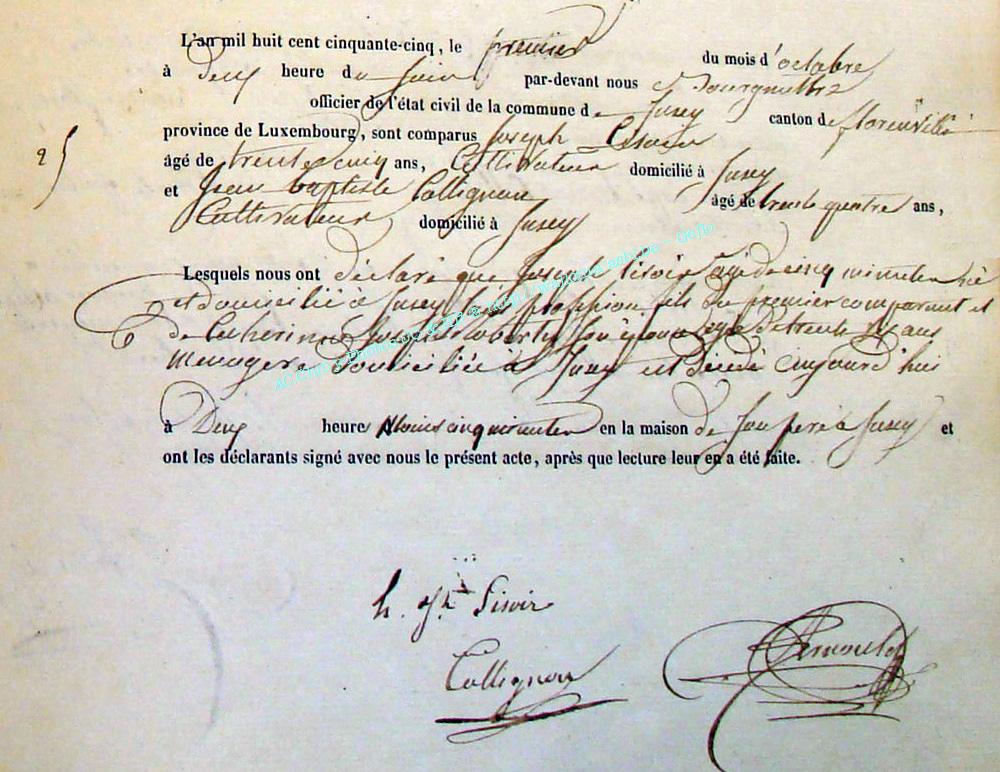 L'an mil huit cent cinquante-cinq, le premier du mois d'octobre
à Deux heure du soir par-devant nous Bourgmestre
officier de l'état civil de la commune de Jusey canton de florenville
province de Luxembourg, sont comparus Joseph Lisoir
25
âgé de trente cinq ans, Cultivateur domicilié à Jusey
et Jean baptiste Collignon âgé de trente quatre ans,
Cultivateur domicilié à Jusey
Lesquels nous ont déclaré que Joseph lisoir agé de cinq minutes né
et domicilié à Jusey sans profession fils du premier comparant et
de Catherinne Roberty son épouse agé de trente ans
menagere Domiciliée à Jusey est décédé aujourd'hui
à Deux heure Moins cinq minutes en la maison de son pere à Jusey et
ont les déclarants signé avec nous le présent acte, après que lecture leur en a été faite.
h. Jh Lisoir
Collignon